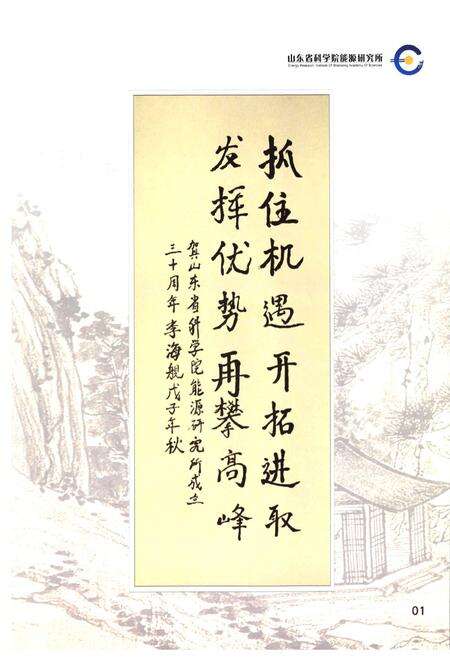 山东省科学院能源研究所
Energy Research Institute Of Shandong Academy Of Sciences
抓住机遇开拓进取
发挥优势再攀高峰
贺山东省科学院能源研究所成立
三十周年 李海舰戊子年秋
01